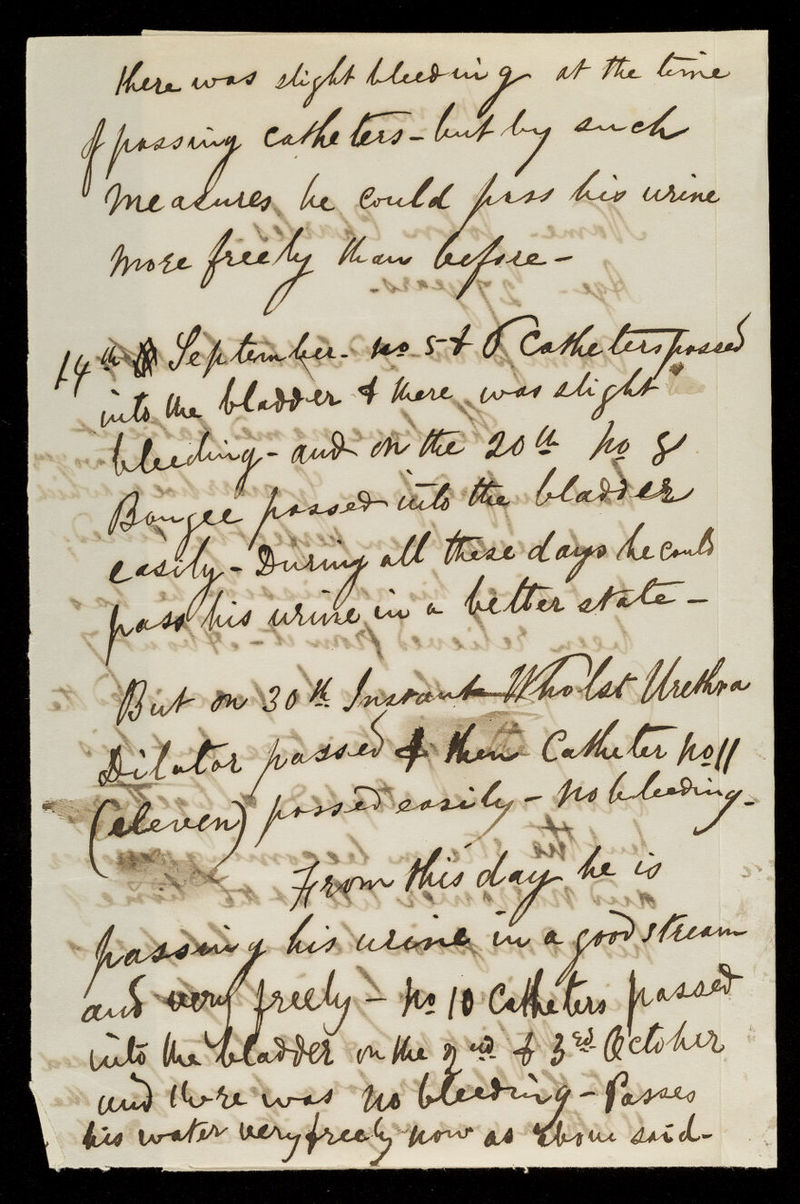 there was slight bleeding at the time
of passing catheters - but by such
measures he could pass his urine
more freely than before -
14th September - no 5 & 6 Catheters passed
into the bladder & there was slight
bleeding - and on the 20th No 8
Bougee passed into the bladder
easily - During all these days he could
pass his urine in a better state -
But on 30th Instant Wholst Urethra
Dilator passed & then Catheter no 11
(eleven) passed easily - no bleeding -
From this day he is
passing his urine in a good stream
and very freely - No 10 Catheters passed
into the bladder on the 2nd & 3rd October
and there was no bleeding - Passes
his water very freely now as above said -